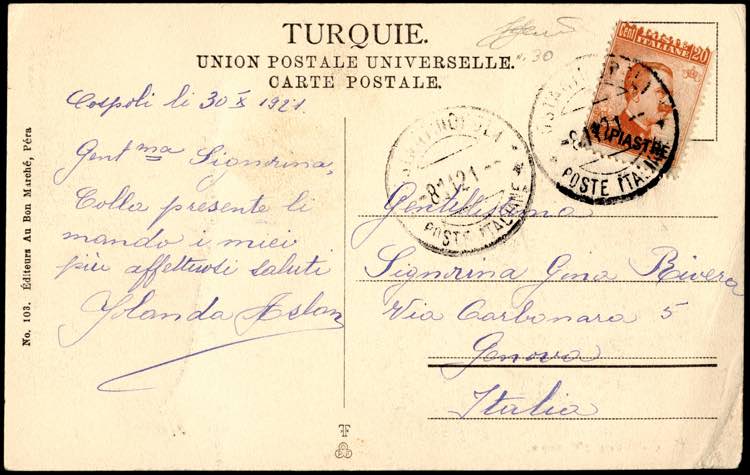 TURQUIE.
UNION POSTALE UNIVERSELLE.
CARTE POSTALE.
30
Cent 20
POSTE ITALIANE
1 PIASTRE
8.11.21
POSTE ITALIANE
8.11.21
POSTE ITALIANE
Cospoli li 30 X 1921
Gent.ma Signorina,
Colla presente li
mando i miei
più affettuosi saluti
Yolanda Aslan
Gentilissima
Signorina Gina Rivera
Via Carbonara 5
Genova
Italia
No. 103. Éditeurs Au Bon Marché, Péra